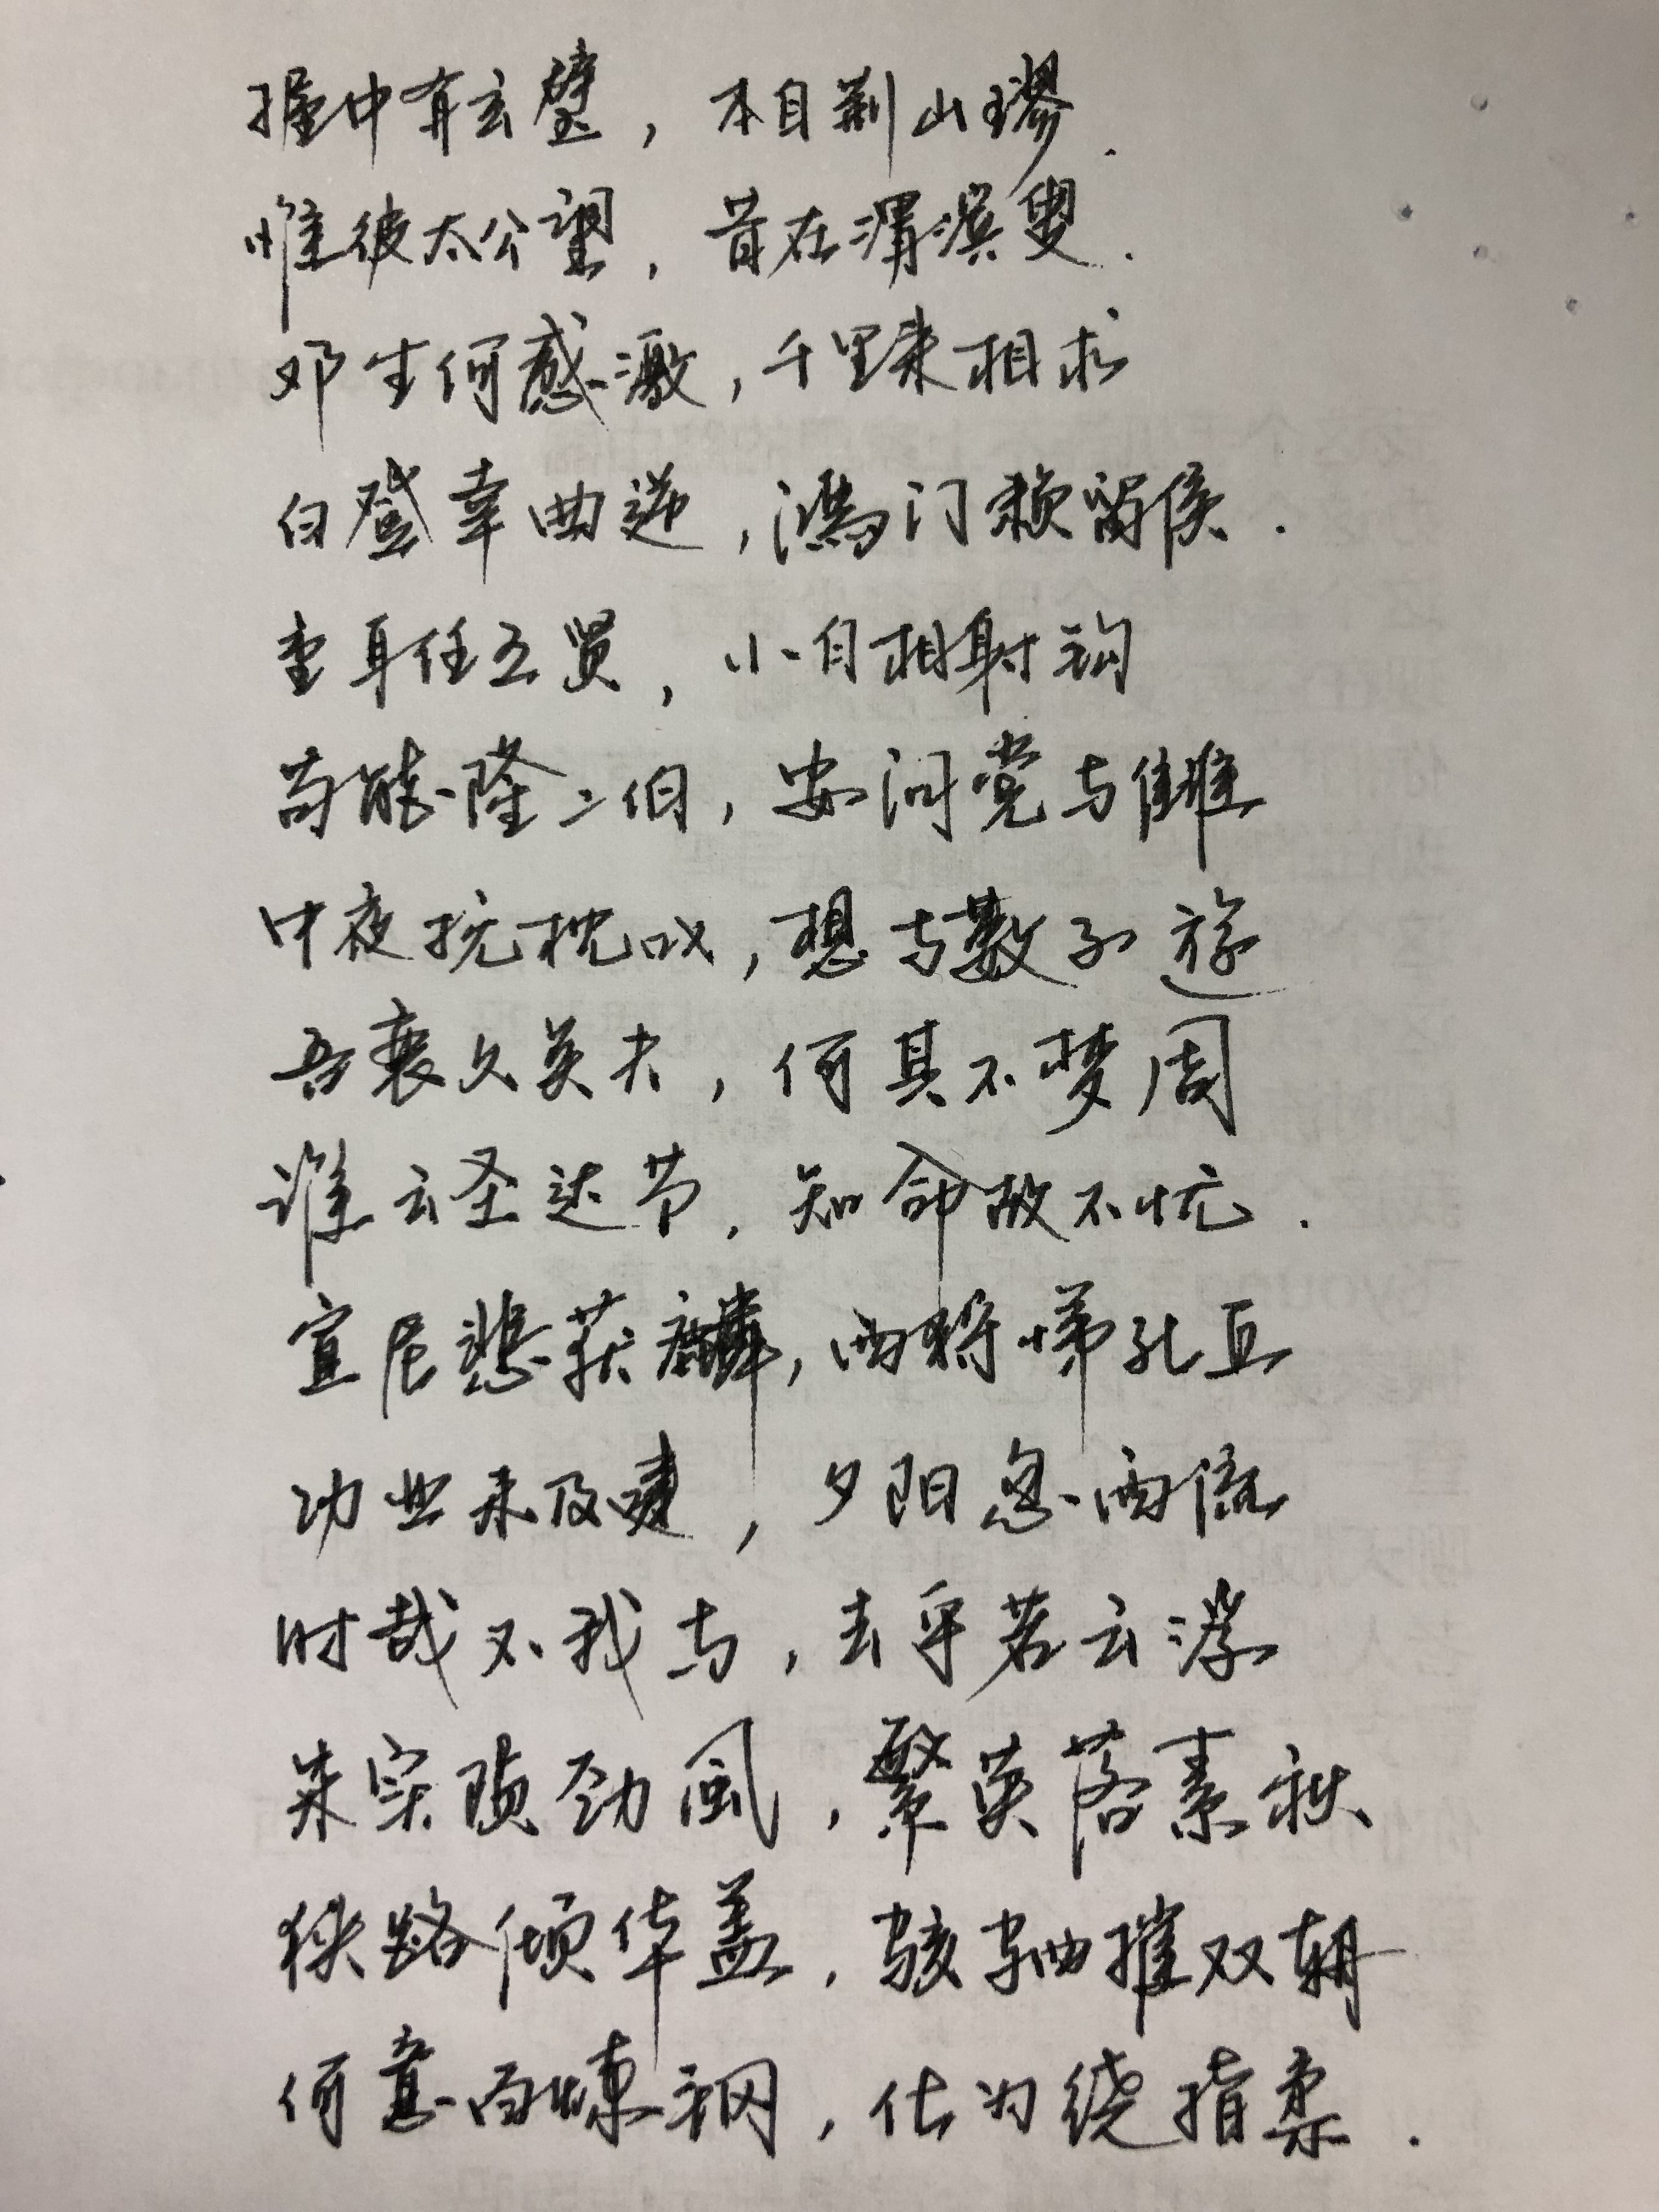 握中有玄璧，本自荆山璆.
惟彼太公望，昔在渭滨叟.
邓生何感激，千里来相求
白登幸曲逆，鸿门赖留侯.
重耳任五贤，小白相射钩
苟能隆二伯，安问党与雠
中夜抚枕叹，想与数子游
吾衰久矣夫，何其不梦周
谁云圣达节，知命故不忧.
宣尼悲获麟，西狩悌孔丘
功业未及建，夕阳忽西流
时哉不我与，去乎若云浮
朱实陨劲風，繁英落素秋
狭路倾华盖，骇轴摧双辀
何意百炼钢，化为绕指柔.